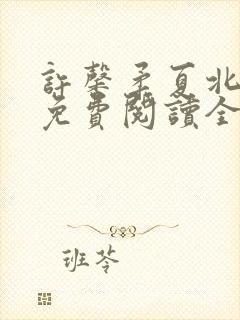 許馨予夏北
免費閱讀全
班苓